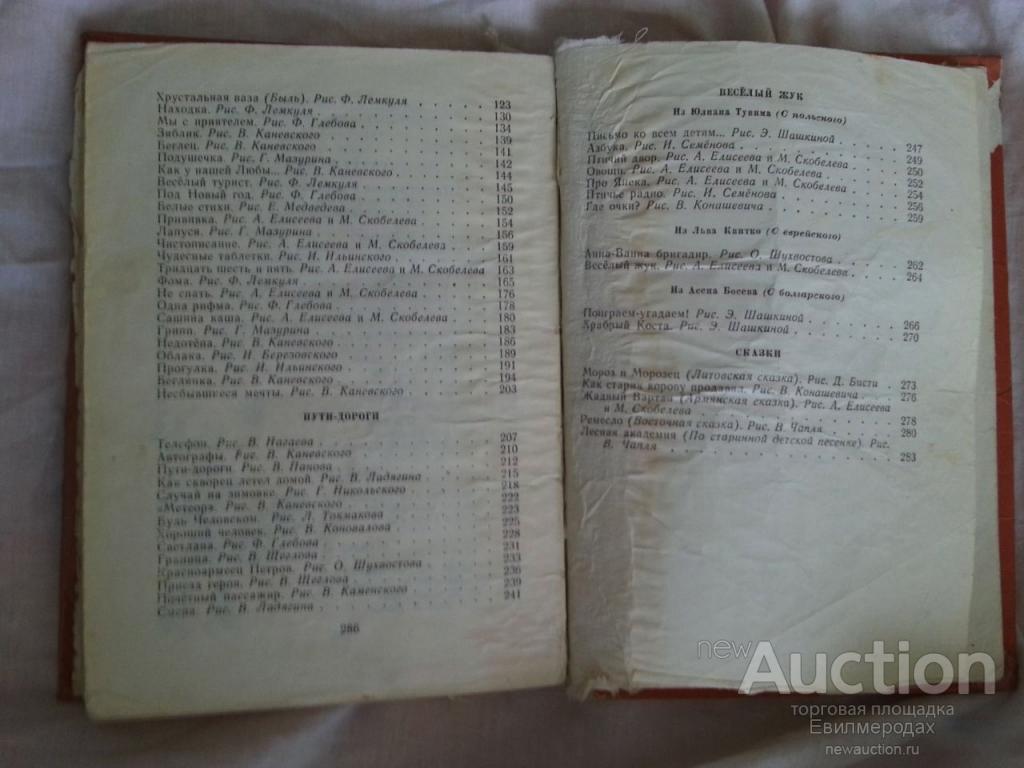 Хрустальная ваза (Быль). Рис. Ф. Лемкуля . . . . . 123
Находка. Рис. Ф. Лемкуля . . . . . 130
Мы с приятелем. Рис. Ф. Глебова . . . . . 134
Зяблик. Рис. В. Каневского . . . . . 139
Беглец. Рис. В. Каневского . . . . . 141
Подушечка. Рис. Г. Мазурина . . . . . 142
Как у нашей Любы... Рис. В. Каневского . . . . . 144
Весёлый турист. Рис. Ф. Лемкуля . . . . . 145
Под Новый год. Рис. Ф. Глебова . . . . . 150
Белые стихи. Рис. Е. Медведева . . . . . 152
Прививка. Рис. А. Елисеева и М. Скобелева . . . . . 154
Лапуся. Рис. Г. Мазурина . . . . . 156
Чистописание. Рис. А. Елисеева и М. Скобелева . 159
Чудесные таблетки. Рис. И. Ильинского . . . . . 161
Тридцать шесть и пять. Рис. А. Елисеева и М. Скобелева 163
Фома. Рис. Ф. Лемкуля . . . . . 165
Не спать. Рис. А. Елисеева и М. Скобелева . . . . . 176
Одна рифма. Рис. Ф. Глебова . . . . . 178
Сашина каша. Рис. А. Елисеева и М. Скобелева . 180
Грипп. Рис. Г. Мазурина . . . . . 183
Недотёпа. Рис. В. Каневского . . . . . 186
Облака. Рис. И. Березовского . . . . . 189
Прогулка. Рис. И. Ильинского . . . . . 191
Беглянка. Рис. В. Каневского . . . . . 194
Несбывшиеся мечты. Рис. В. Каневского . . . . . 203
ПУТИ-ДОРОГИ
Телефон. Рис. В. Нагаева . . . . . 207
Автографы. Рис. В. Каневского . . . . . 210
Пути-дороги. Рис. В. Панова . . . . . 212
Как скворец летел домой. Рис. В. Ладягина . . . . . 215
Случай на зимовке. Рис. Г. Никольского . . . . . 218
«Метеор». Рис. В. Каневского . . . . . 222
Будь Человеком. Рис. Л. Токмакова . . . . . 223
Хороший человек. Рис. В. Коновалова . . . . . 225
Светлана. Рис. Ф. Глебова . . . . . 228
Граница. Рис. В. Щеглова . . . . . 231
Красноармеец Петров. Рис. О. Шухвостова . . . . . 233
Приезд героя. Рис. В. Щеглова . . . . . 236
Почётный пассажир. Рис. В. Каменского . . . . . 239
Смена. Рис. В. Ладягина . . . . . 241
286
ВЕСЁЛЫЙ ЖУК
Из Юлиана Тувима (С польского)
Письмо ко всем детям... Рис. Э. Шашкиной . . . . . 247
Азбука. Рис. И. Семёнова . . . . . 249
Птичий двор. Рис. А. Елисеева и М. Скобелева . . . . . 250
Овощи. Рис. А. Елисеева и М. Скобелева . . . . . 252
Про Янека. Рис. А. Елисеева и М. Скобелева . . . . . 254
Птичье радио. Рис. И. Семёнова . . . . . 256
Где очки? Рис. В. Конашевича . . . . . 259
Из Льва Квитко (С еврейского)
Анна-Ванна бригадир. Рис. О. Шухвостова . . . . . 262
Весёлый жук. Рис. А. Елисеева и М. Скобелева . . . . . 264
Из Асена Босева (С болгарского)
Поиграем-угадаем! Рис. Э. Шашкиной . . . . . 266
Храбрый Коста. Рис. Э. Шашкиной . . . . . 270
СКАЗКИ
Мороз и Морозец (Литовская сказка). Рис. Д. Бисти . 273
Как старик корову продавал. Рис. В. Конашевича . 276
Жадный Вартан (Армянская сказка). Рис. А. Елисеева
и М. Скобелева . . . . . 278
Ремесло (Восточная сказка). Рис. В. Чапля . . . . . 280
Лесная академия (По старинной детской песенке). Рис.
В. Чапля . . . . . 283
newAuction
торговая площадка
Евилмеродах
newauction.ru